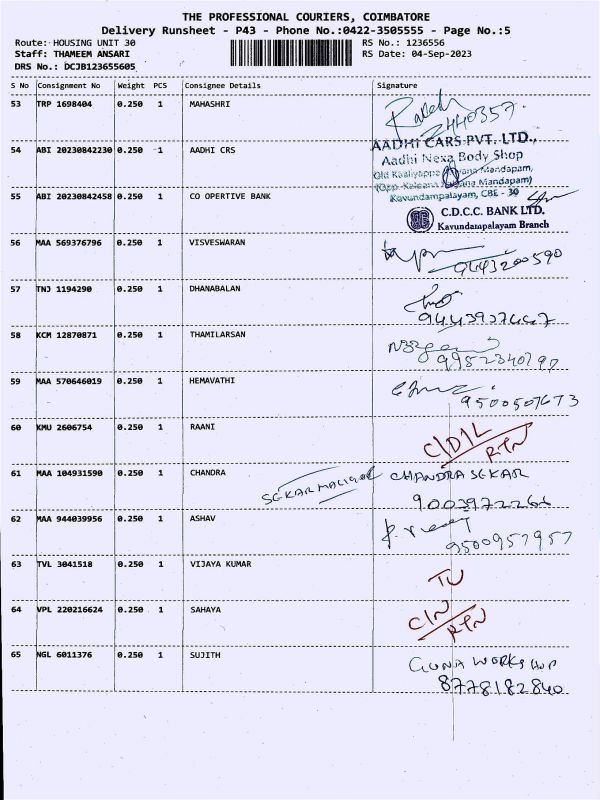 THE PROFESSIONAL COURIERS, COIMBATORE
Delivery Runsheet - P43 - Phone No.:0422-3505555 - Page No.:5
Route: HOUSING UNIT 30 RS No.: 1236556
Staff: THAMEEM ANSARI RS Date: 04-Sep-2023
DRS No.: DCJB123655605
S No Consignment No Weight PCS Consignee Details Signature
53 TRP 1698404 0.250 1 MAHASHRI
2440357
54 ABI 20230842230 0.250 1 AADHI CRS
AADHI CARS PVT. LTD.,
Aadhi Nexa Body Shop
Mandapam,
Mandapam)
Kavundampalayam, CBE - 30
55 ABI 20230842458 0.250 1 CO OPERTIVE BANK
C.D.C.C. BANK LTD.
Kavundampalayam Branch
56 MAA 569376796 0.250 1 VISVESWARAN
9443200590
57 TNJ 1194290 0.250 1 DHANABALAN
58 KCM 12870871 0.250 1 THAMILARSAN
59 MAA 570646019 0.250 1 HEMAVATHI
9500507673
60 KMU 2606754 0.250 1 RAANI
C/D/L
RTN
61 MAA 104931590 0.250 1 CHANDRA CHANDRA SEKAR
9003972266
62 MAA 944039956 0.250 1 ASHAV
9500957957
63 TVL 3041518 0.250 1 VIJAYA KUMAR
64 VPL 220216624 0.250 1 SAHAYA C/N
RTN
65 NGL 6011376 0.250 1 SUJITH GUNA WORKSHOP
8778182840